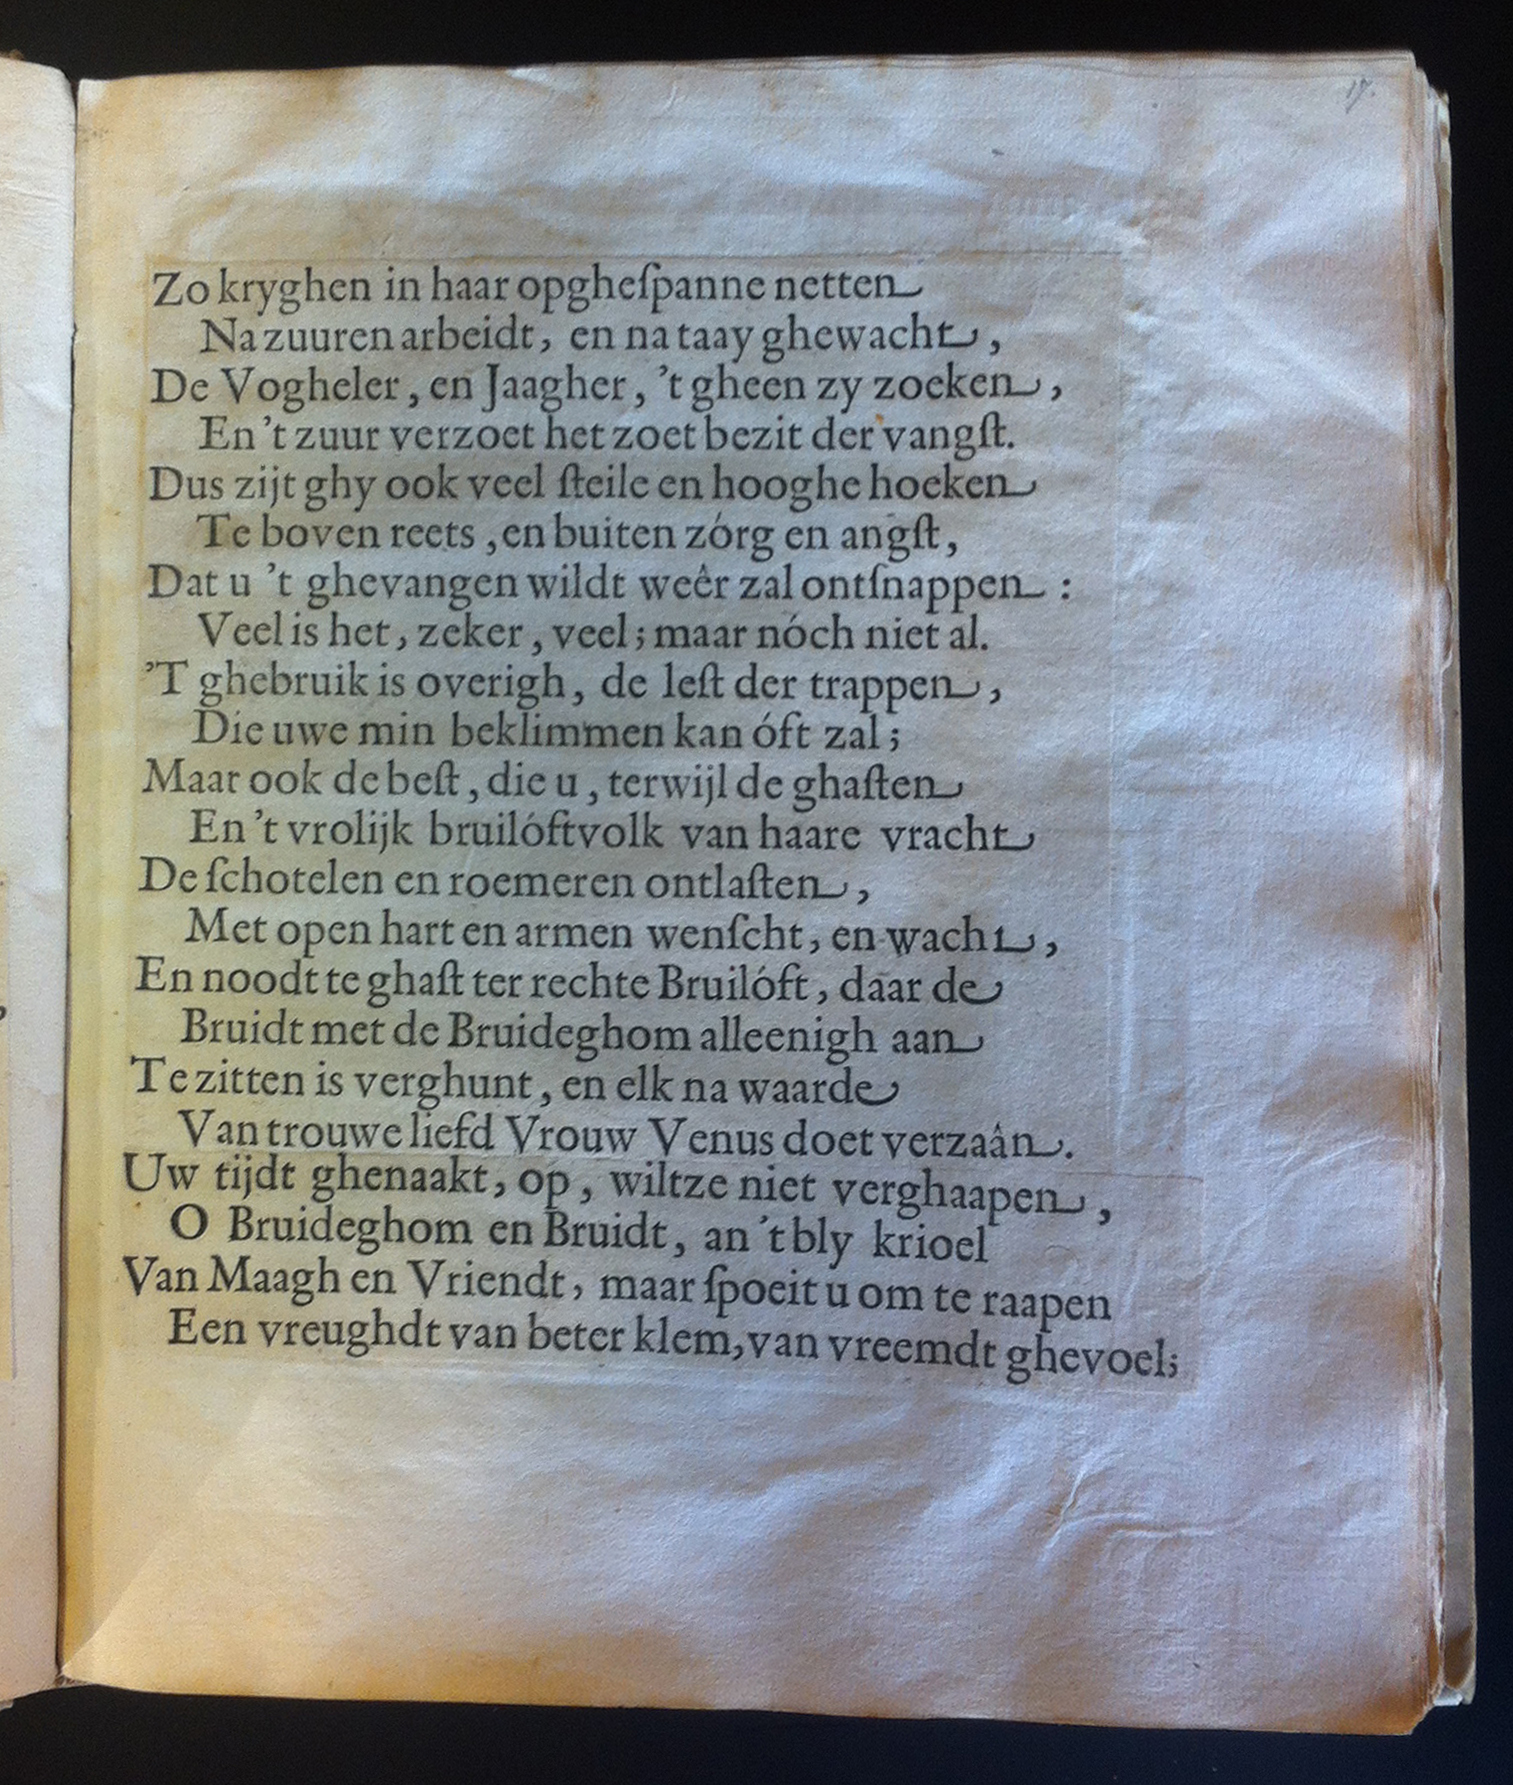 17.
Zo kryghen in haar opgheſpanne netten
Na zuuren arbeidt, en na taay ghewacht,
De Vogheler, en Jaagher, 't gheen zy zoeken,
En 't zuur verzoet het zoet bezit der vangſt.
Dus zijt ghy ook veel ſteile en hooghe hoeken
Te boven reets, en buiten zórg en angſt,
Dat u 't ghevangen wildt weêr zal ontſnappen:
Veel is het, zeker, veel; maar nóch niet al.
'T ghebruik is overigh, de leſt der trappen,
Die uwe min beklimmen kan óft zal;
Maar ook de beſt, die u, terwijl de ghaſten
En 't vrolijk bruilóftvolk van haare vracht
De ſchotelen en roemeren ontlaſten,
Met open hart en armen wenſcht, en wacht,
En noodt te ghaſt ter rechte Bruilóft, daar de
Bruidt met de Bruideghom alleenigh aan
Te zitten is verghunt, en elk na waarde
Van trouwe liefd Vrouw Venus doet verzaân.
Uw tijdt ghenaakt, op, wiltze niet verghaapen,
O Bruideghom en Bruidt, an 't bly krioel
Van Maagh en Vriendt, maar ſpoeit u om te raapen
Een vreughdt van beter klem, van vreemdt ghevoel;